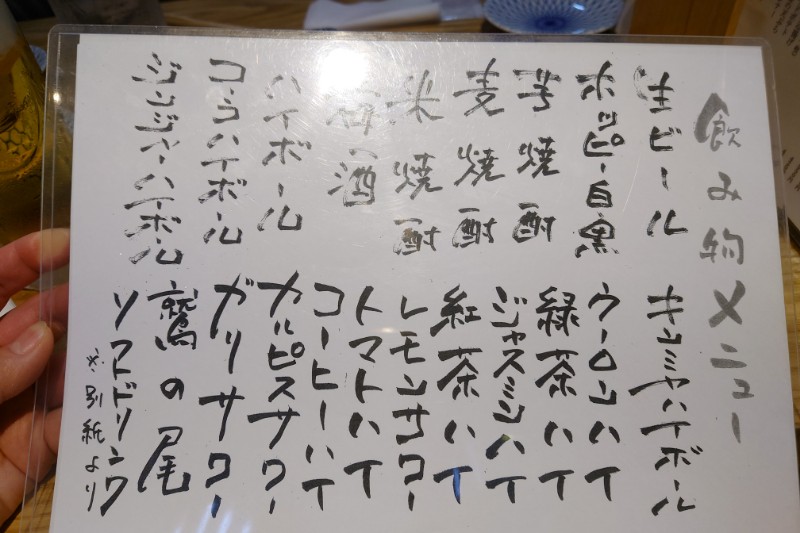 飲み物メニュー
生ビール
ホッピー白・黒
芋焼酎
麦焼酎
米焼酎
梅酒
ハイボール
コーラハイボール
ジンジャーハイボール
キンミヤハイボール
ウーロンハイ
緑茶ハイ
ジャスミンハイ
紅茶ハイ
レモンサワー
トマトハイ
コーヒーハイ
カルピスサワー
ガリサワー
鷲の尾
ソフトドリンク
※別紙より